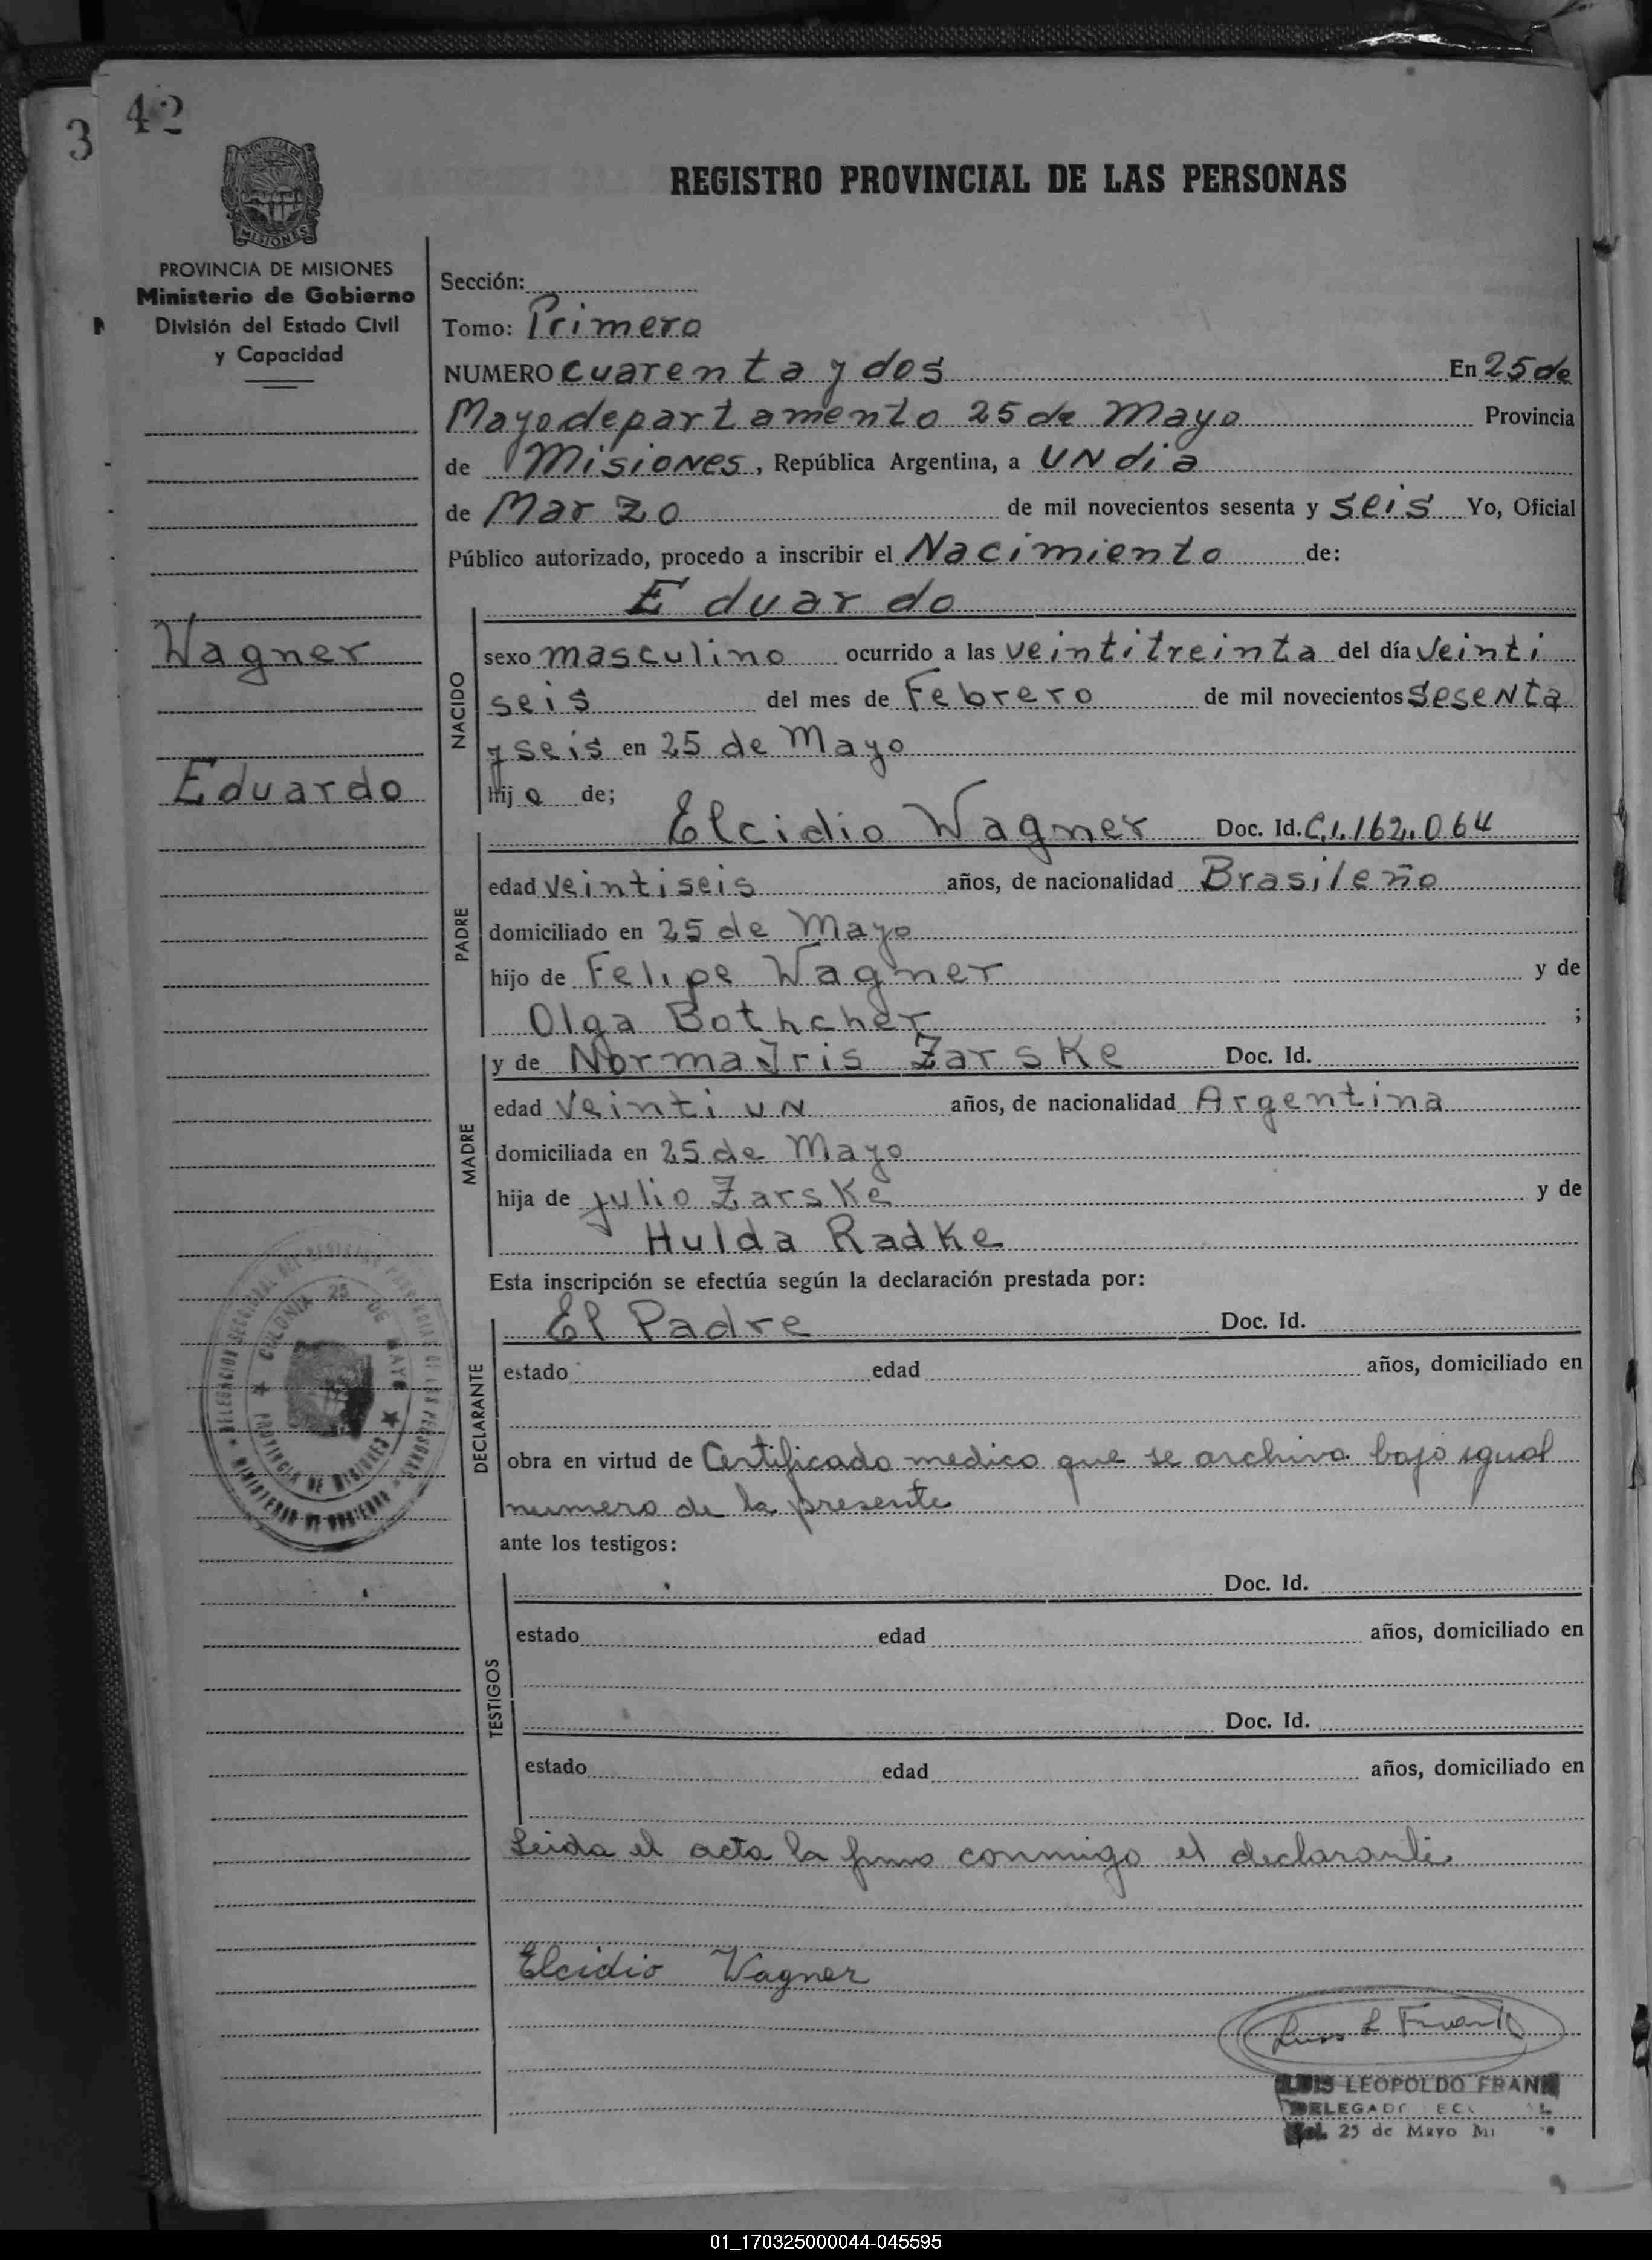 3
42
PROVINCIA DE
MISIONES
REGISTRO PROVINCIAL DE LAS PERSONAS
PROVINCIA DE MISIONES
Ministerio de Gobierno
División del Estado Civil
y Capacidad
Wagner
Eduardo
Sección:
Tomo: Primero
NUMERO cuarenta y dos En 25 de
Mayo departamento 25 de Mayo Provincia
de Misiones, República Argentina, a UN dia
de Marzo de mil novecientos sesenta y seis Yo, Oficial
Público autorizado, procedo a inscribir el Nacimiento de:
NACIDO
Eduardo
sexo masculino ocurrido a las veintitreinta del día veinti
seis del mes de Febrero de mil novecientos sesenta
y seis en 25 de Mayo
hijo de;
PADRE
Elcidio Wagner Doc. Id. C.I. 162.064
edad veintiseis años, de nacionalidad Brasileño
domiciliado en 25 de Mayo
hijo de Felipe Wagner y de
Olga Bothcher ;
MADRE
y de Norma Jris Zarske Doc. Id.
edad veinti un años, de nacionalidad Argentina
domiciliada en 25 de Mayo
hija de julio Zarske y de
Hulda Radke
Esta inscripción se efectúa según la declaración prestada por:
DECLARANTE
El Padre Doc. Id.
estado edad años, domiciliado en
obra en virtud de Certificado medico que se archiva bajo igual
numero de la presente
COLONIA 25 DE MAYO
PROVINCIA DE MISIONES
ante los testigos:
TESTIGOS
Doc. Id.
estado edad años, domiciliado en
Doc. Id.
estado edad años, domiciliado en
Leida el acta la firma conmigo el declarante
Elcidio Wagner
Luis L Frank
LUIS LEOPOLDO FRANK
DELEGADO
Col. 25 de Mayo
01_170325000044-045595